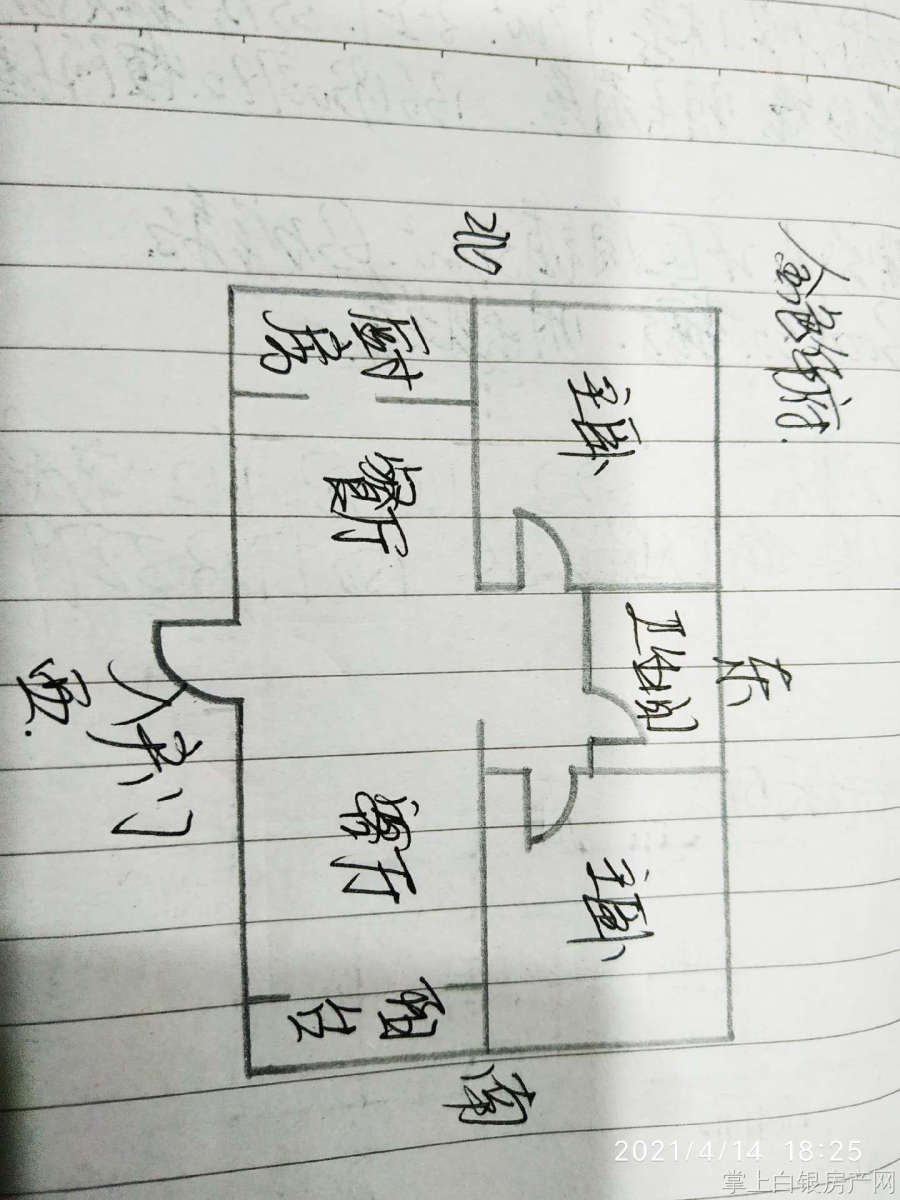 北
厨房
主卧
餐厅
卫生间
东
西
入户门
客厅
主卧
阳台
南
2021/4/14 18:25
掌上白银房产网